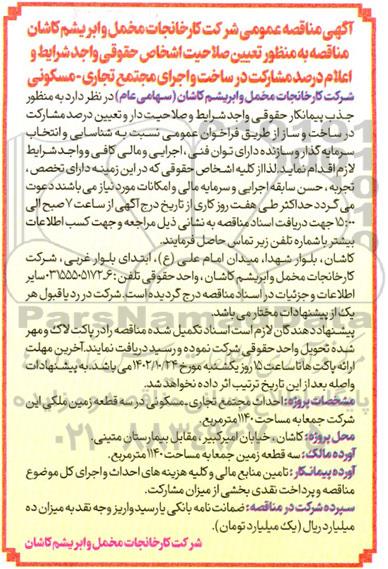 آگهی مناقصه عمومی شرکت کارخانجات مخمل و ابریشم کاشان
مناقصه به منظور تعیین صلاحیت اشخاص حقوقی واجد شرایط و
اعلام درصد مشارکت در ساخت و اجرای مجتمع تجاری - مسکونی
شرکت کارخانجات مخمل و ابریشم کاشان (سهامی عام) در نظر دارد به منظور
جذب پیمانکار حقوقی واجد شرایط و صلاحیت دار و تعیین درصد مشارکت
در ساخت و ساز از طریق فراخوان عمومی نسبت به شناسایی و انتخاب
سرمایه گذار و سازنده دارای توان فنی، اجرایی و مالی کافی و واجد شرایط
لازم اقدام نماید. لذا از کلیه اشخاص حقوقی که در این زمینه دارای تخصص،
تجربه، حسن سابقه اجرایی و سرمایه مالی و امکانات مورد نیاز می باشند دعوت
می گردد حداکثر طی هفت روز کاری از تاریخ درج آگهی از ساعت ۷ صبح الی
۱۵:۰۰ جهت دریافت اسناد مناقصه به نشانی ذیل مراجعه و جهت کسب اطلاعات
بیشتر با شماره تلفن زیر تماس حاصل فرمایند.
کاشان، بلوار شهدا، میدان امام علی (ع)، ابتدای بلوار غربی، شرکت
کارخانجات مخمل و ابریشم کاشان، واحد حقوقی تلفن: ۶-۰۳۱۵۵۵۰۵۱۷۲ سایر
اطلاعات و جزئیات در اسناد مناقصه درج گردیده است. شرکت در رد یا قبول هر
یک از پیشنهادات مختار می باشد.
پیشنهاد دهندگان لازم است اسناد تکمیل شده مناقصه را در پاکت لاک و مهر
شده تحویل واحد حقوقی شرکت نموده و رسید دریافت نمایند. آخرین مهلت
ارائه پاکت ها تا ساعت ۱۵ روز یکشنبه مورخ ۱۴۰۲/۱۰/۲۴ می باشد. به پیشنهادات
واصله بعد از این تاریخ ترتیب اثر داده نخواهد شد.
مشخصات پروژه: احداث مجتمع تجاری - مسکونی در سه قطعه زمین ملکی این
شرکت جمعا به مساحت ۱۱۴۰ مترمربع.
محل پروژه: کاشان، خیابان امیرکبیر، مقابل بیمارستان متینی.
آورده مالک: سه قطعه زمین جمعا به مساحت ۱۱۴۰ مترمربع.
آورده پیمانکار: تامین منابع مالی و کلیه هزینه های احداث و اجرای کل موضوع
مناقصه و پرداخت نقدی بخشی از میزان مشارکت.
سپرده شرکت در مناقصه: ضمانت نامه بانکی یا رسید واریز وجه نقد به میزان ده
میلیارد ریال (یک میلیارد تومان).
شرکت کارخانجات مخمل و ابریشم کاشان